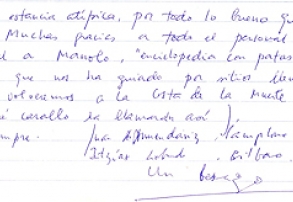 estancia atípica, por todo lo bueno qu
Muchas gracias a todo el personal
a Manolo, "enciclopedia con patas
que nos ha guiado por sitios
volveremos a la Costa de la Muerte
carallo la llamarán así
Pamplona
Itziar Bilbao
Un beso